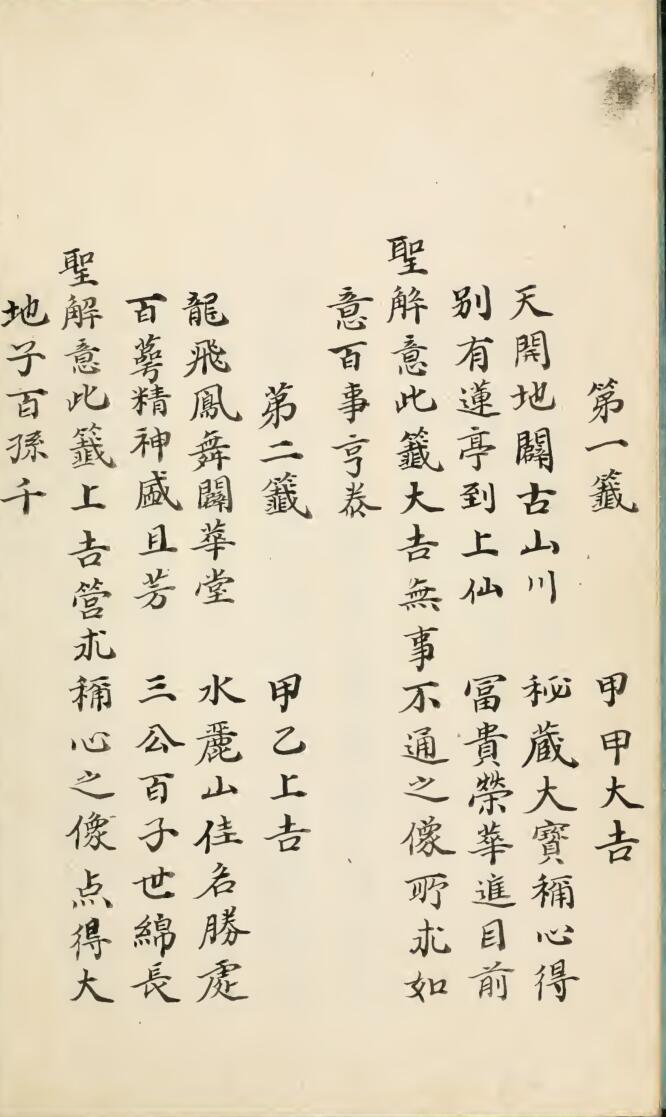 第一籤 甲甲大吉
天開地闢古山川 秘藏大寳稱心得
別有蓮亭到上仙 冨貴榮華進目前
聖解意此籤大吉無事不通之像所求如
意百事亨泰
第二籤 甲乙上吉
龍飛鳳舞闢華堂 水麗山佳名勝處
百蕚精神盛且芳 三公百子世綿長
聖解意此籤上吉营求稱心之像点得大
地子百孫千